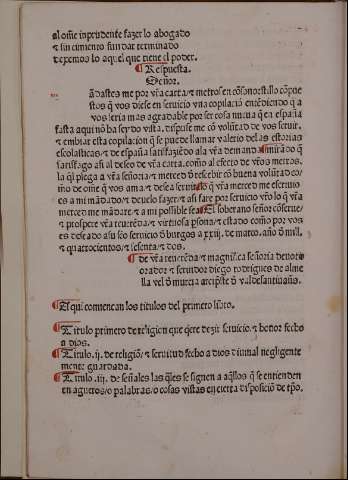 al ome inprudente fazer lo abogado
⁊ sin cimiento fundar terminado
dexemos lo aquel que tiene el poder.
¶ Respuesta.
Señor.
ādastes me por vr̃a carta ⁊ metros en cōsonos
tos q̄ vos diese en seruicio vna copilaciō entēdiendo q̄ a
vos seria mas agradable por ser cosa nueua que en españa
fasta aqui nō ha seydo vista. dispuse me cō volūtad de vos seruir.
⁊ enbiar esta copilacion q̄ se puede llamar valerio delas estorias
escolasticas ⁊ de españa satisfaziēdo ala vr̃a demanda. ¶ mira do q̄
satisfago asi al deseo de vr̃a carta. como al efecto de vr̃os metros.
la q̄l plega a vr̃a señoria ⁊ merced d̄ rescebir cō buena volūtad co/
mo de ome q̄ vos ama ⁊ desea seruir ¶ lo q̄ vr̃a merced me escriuio
es a mi mādado ⁊ deuelo fazer ⁊ asi fare por seruicio vr̃o lo q̄ vr̃a
merced me mādare ⁊ a mi posible sea ¶ El soberano señor cōserue/
⁊ prospere vr̃a reuerēda ⁊ virtuosa psona ⁊ estado como por vos
es deseado a su sco seruicio d̄ burgos a xxiij. de março. año d̄ mill.
⁊ quatrocientos ⁊ sesenta ⁊ dos.
¶ de vr̃a reuerēda ⁊ magnifica señoria deuoto
orador ⁊ seruidor diego rodrigues de alme
lla vel d̄ murcia arcip̄ste d̄ val desantiuañes.
¶ El qui comiencan los titulos del primero libro.
¶ Titulo primero de religion que q̄ere dezir seruicio ⁊ honor fecho
a dios.
¶ Titulo .ii. de religiō ⁊ seruitud fecho a dios diuinal negligente
mente guardada.
¶ Titulo .iii. de señales las q̄les se siguen a aq̄llos q̄ se entienden
en agueros/ o palabras/ o cosas vistas en cierta disposiciō de tp̄o.